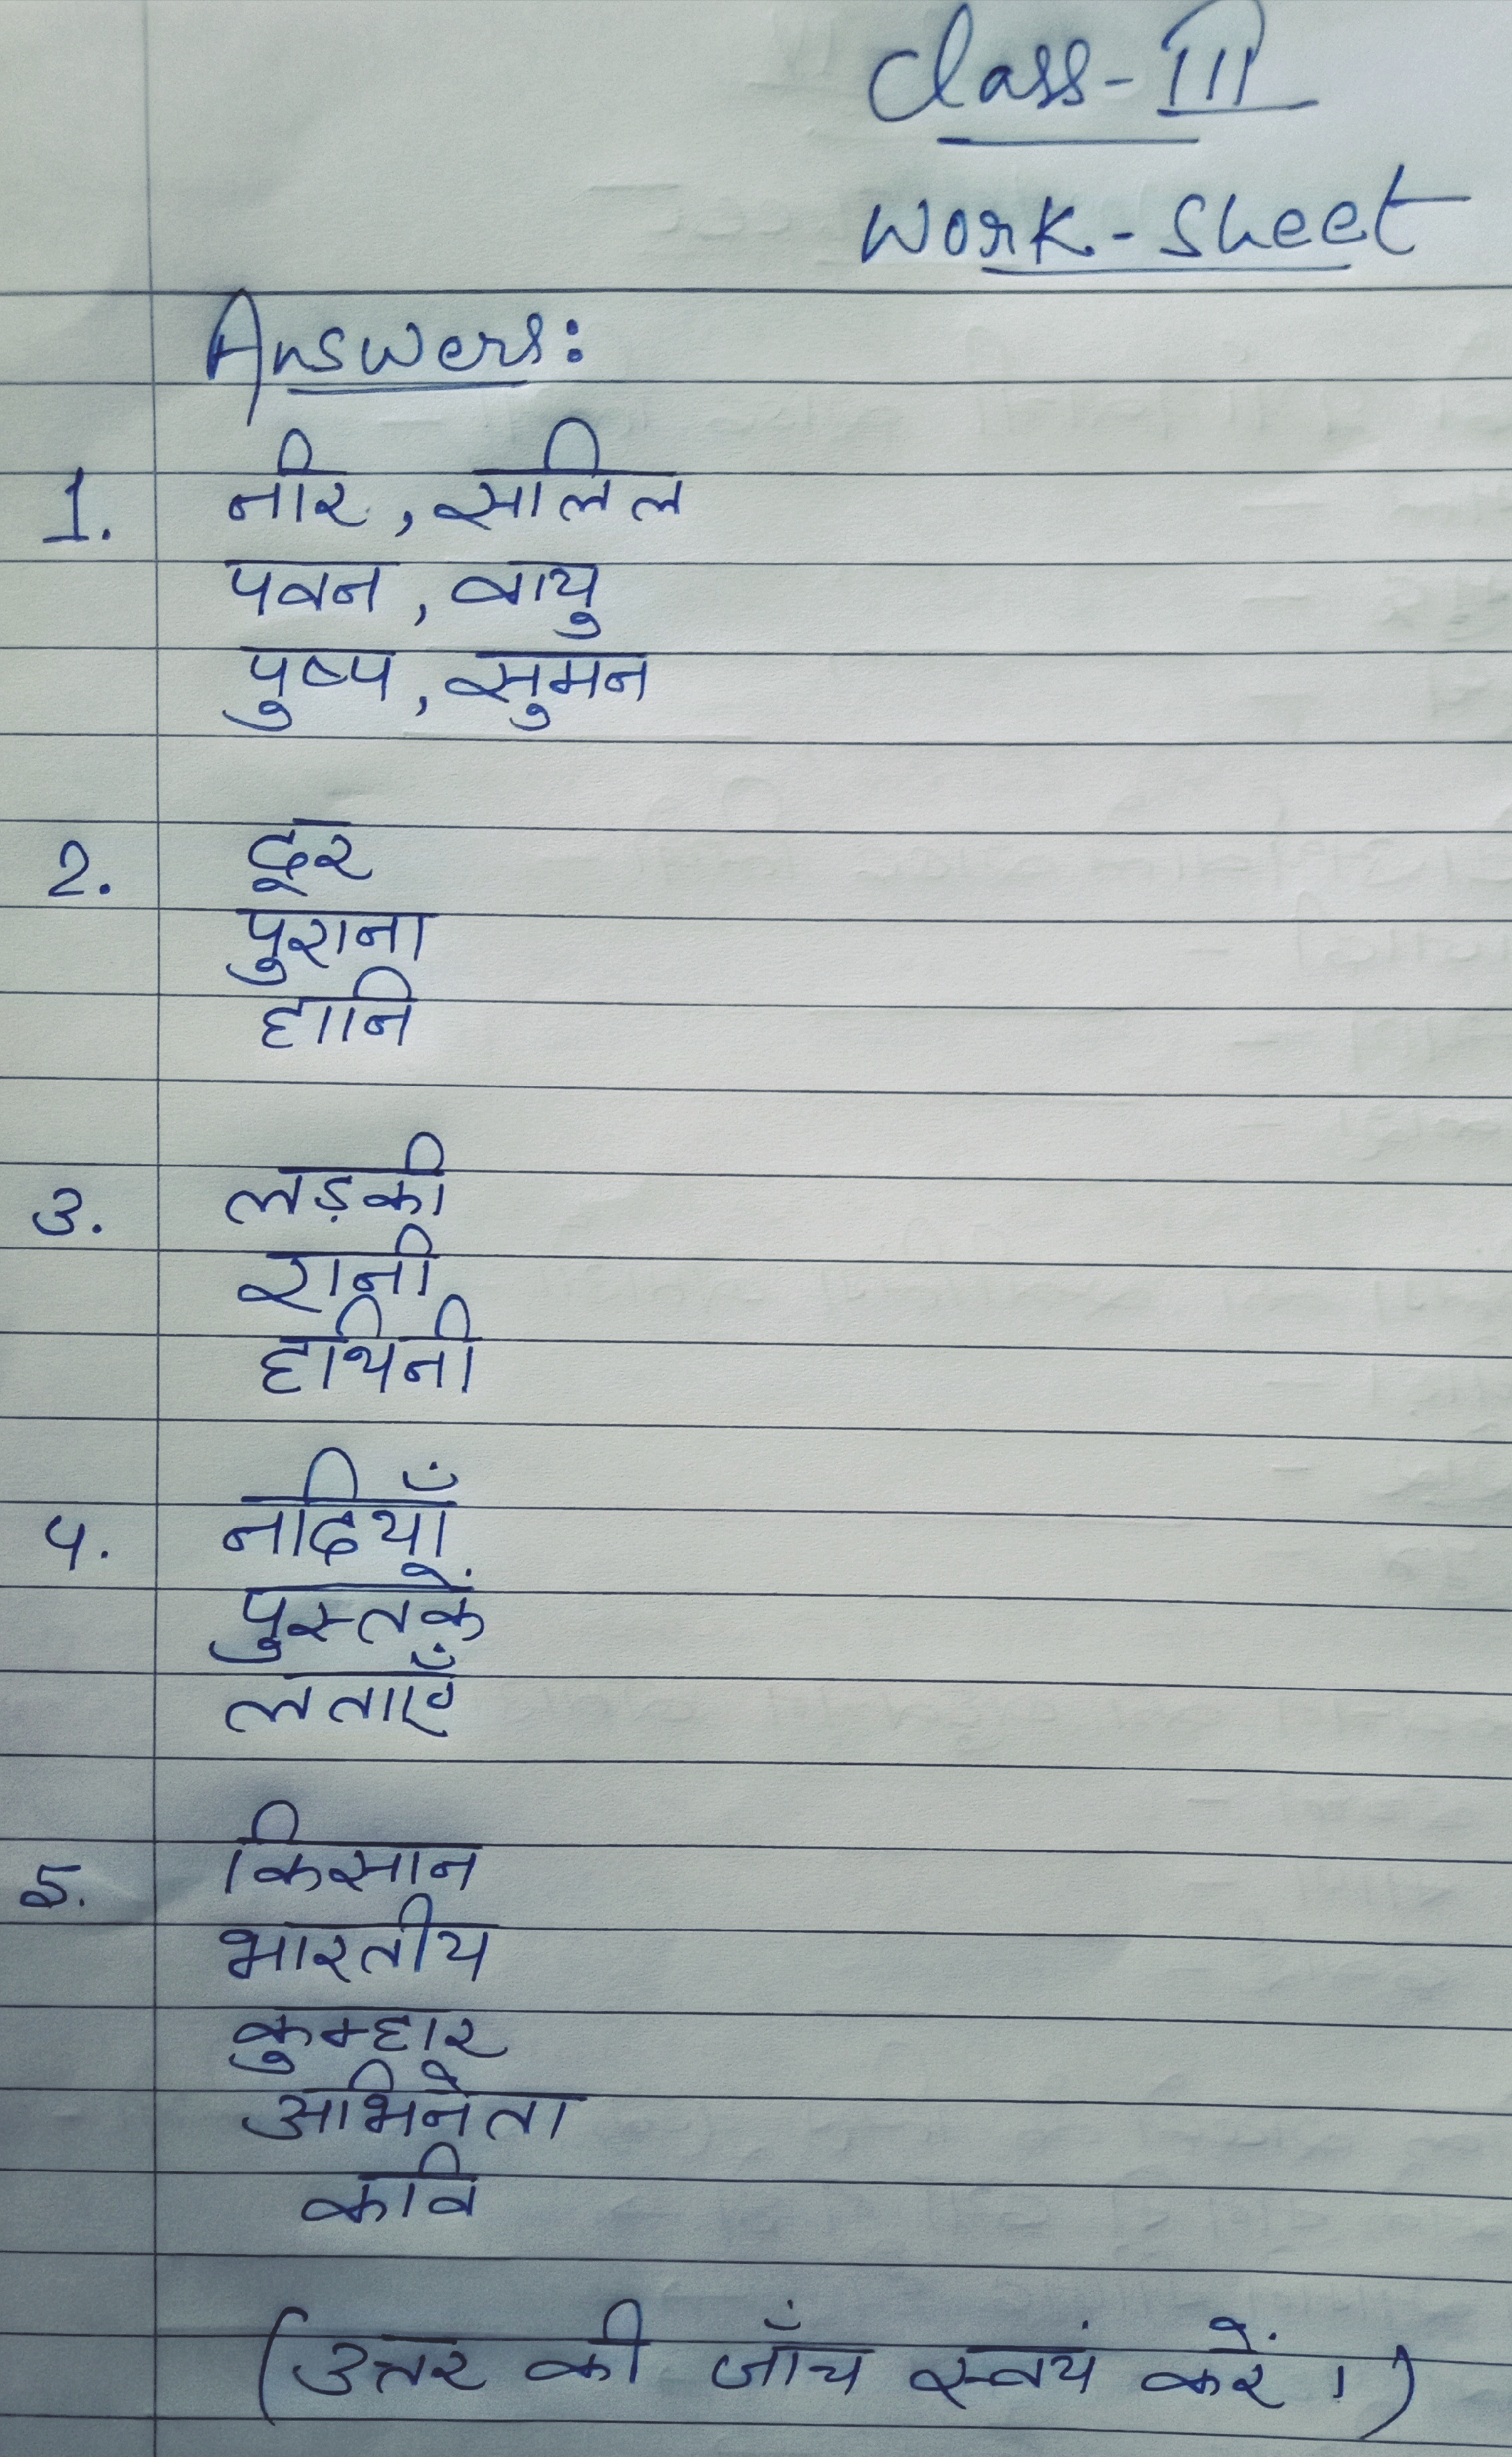 Class-III
Work-Sheet
Answers:
1. नीर, सलिल
पवन, वायु
पुष्प, सुमन
2. दूर
पुराना
हानि
3. लड़की
रानी
हथिनी
4. नदियाँ
पुस्तकें
लताएँ
5. किसान
भारतीय
कुम्हार
अभिनेता
कवि
(उत्तर की जाँच स्वयं करें।)